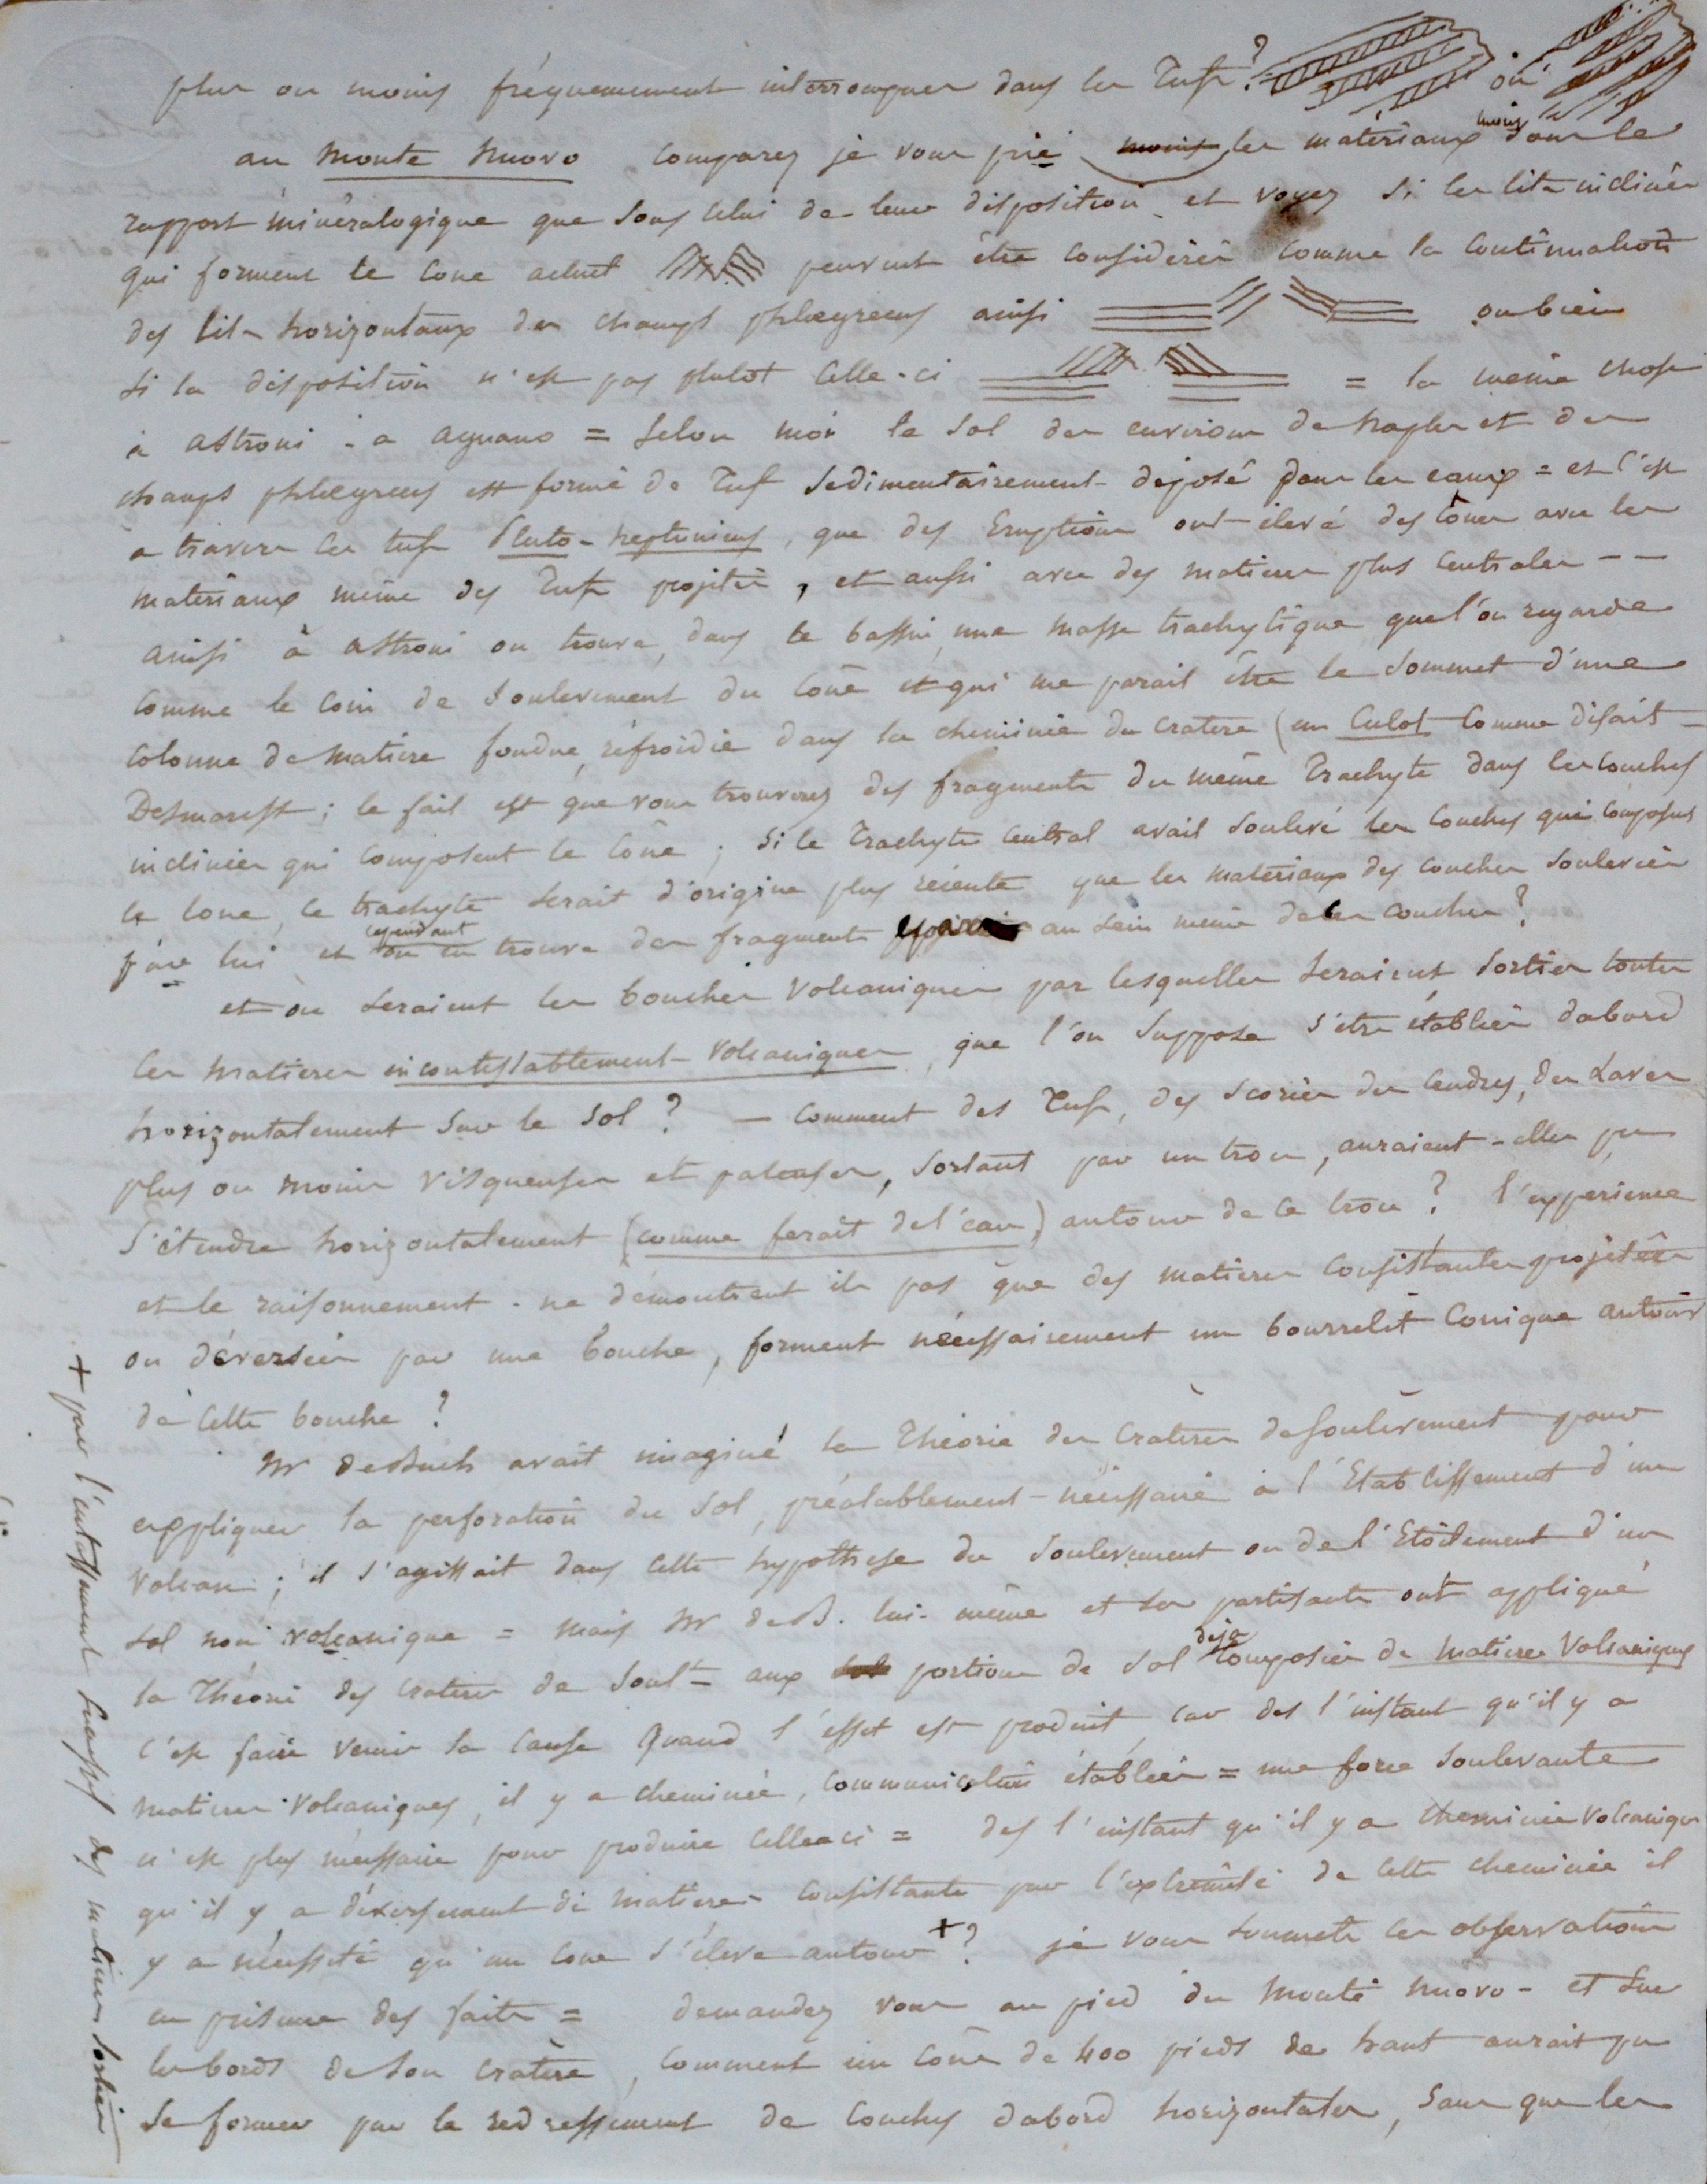 plus ou moins fréquemment interrompues dans les Tufs ? ou
au Monte Nuovo comparez je vous prie les matériaux moins sous le
rapport minéralogique que sous celui de leur disposition et voyez si les lits inclinés
qui forment le cone actuel peuvent être considérés comme la continuation
des lits horizontaux des champs phlegreens ainsi ou bien
si la disposition n'est pas plutot celle-ci = la même chose
à astroni - a agnano = selon moi le sol des environs de Naples et des
champs phlegreens est formé de Tufs sedimentairement déposé dans les eaux = et c'est
a travers ces tufs Pluto-neptuniens, que des Eruptions ont élevé des cônes avec les
matériaux même des Tufs projetés, et aussi avec des matieres plus centrales - -
ainsi à astroni on trouve, dans le bassin, une masse trachytique que l'on regarde
comme le coin de soulevement du cône et qui me parait être le sommet d'une
colonne de matière fondue, refroidie dans la cheminée du cratere (un Culot comme disait
Desmarest ; le fait est que vous trouverez des fragments du même Trachyte dans les couches
inclinées qui composent le cône ; si le Trachyte central avait soulevé les couches qui composent
le cone, ce trachyte serait d'origine plus récente que les materiaux des couches soulevées
par lui et cependant on en trouve des fragments au sein même de ces couches ?
et où seraient les bouches volcaniques par lesquelles seraient sorties toutes
ces matieres incontestablement volcaniques, que l'on suppose s'etre établies dabord
horizontalement sur le sol ? — comment des Tufs, des scories des cendres, des Laves
plus ou moins visqueuses et pateuses, sortant par un trou, auraient-elles pu
s'étendre horizontalement (comme ferait de l'eau) autour de ce trou ? l'experience
et le raisonnement - ne démontrent ils pas que des matieres consistantes projetées
ou déversées par une bouche, forment nécessairement un bourrelet conique autour
de cette bouche ?
Mr de Buch avait imaginé la Théorie des Cratères de soulèvement pour
expliquer la perforation du sol, préalablement nécessaire à l'Etablissement d'un
volcan ; il s'agissait dans cette hypothese du soulevement ou de l'Etoilement d'un
sol non volcanique = mais Mr de B. lui-même et ses partisants ont appliqué
la Théorie des crateres de Soult aux portions de sol déja composées de matieres volcaniques
c'est faire venir la cause quand l'effet est produit, car des l'instant qu'il y a
matieres volcaniques, il y a cheminée, communication établie = une force soulevante
n'est plus necessaire pour produire celle ci = des l'instant qu'il y a cheminée volcanique
qu'il y a déversement de matieres consistante par l'extremité de cette cheminée il
y a necessité qu'un cone s'éleve autour + ? je vous soumets ces observations
en présence des faits = demandez vous au pied du Monte Nuovo - et sur
les bords de son cratère, comment un cône de 400 pieds de haut aurait pu
se former par le redressement de couches dabord horizontales, sans que les
+ par l'entassement successif des matieres sorties